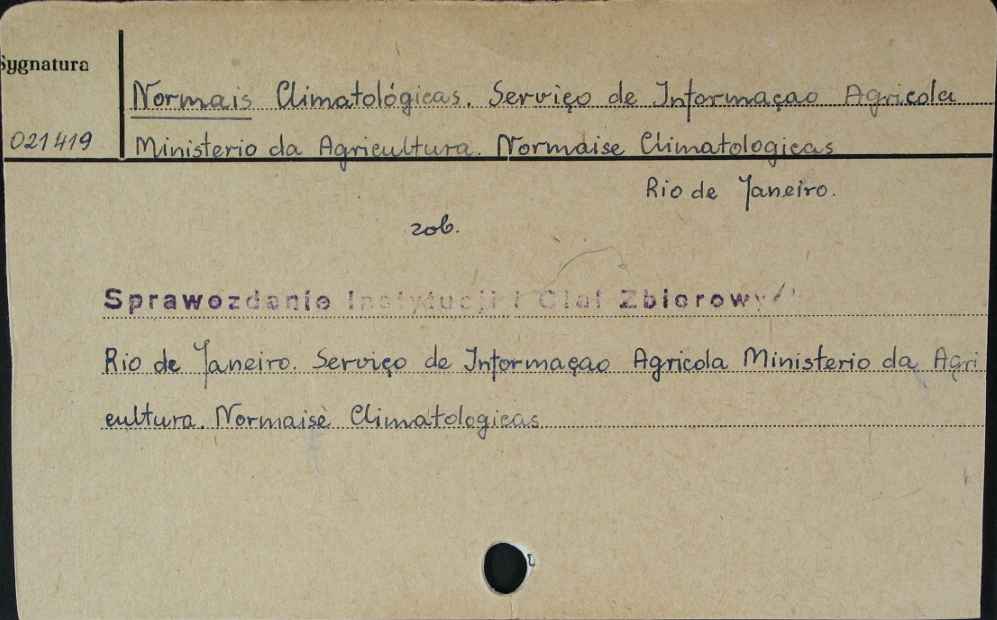 Sygnatura
Normais Climatológicas. Serviço de Informaçao Agricola
021419
Ministerio da Agricultura. Normaise Climatologicas
Rio de Janeiro.
zob.
Sprawozdanie Instytucji i Ciał Zbiorowych
Rio de Janeiro. Serviço de Informaçao Agricola Ministerio da Agri
cultura. Normaise Climatologicas